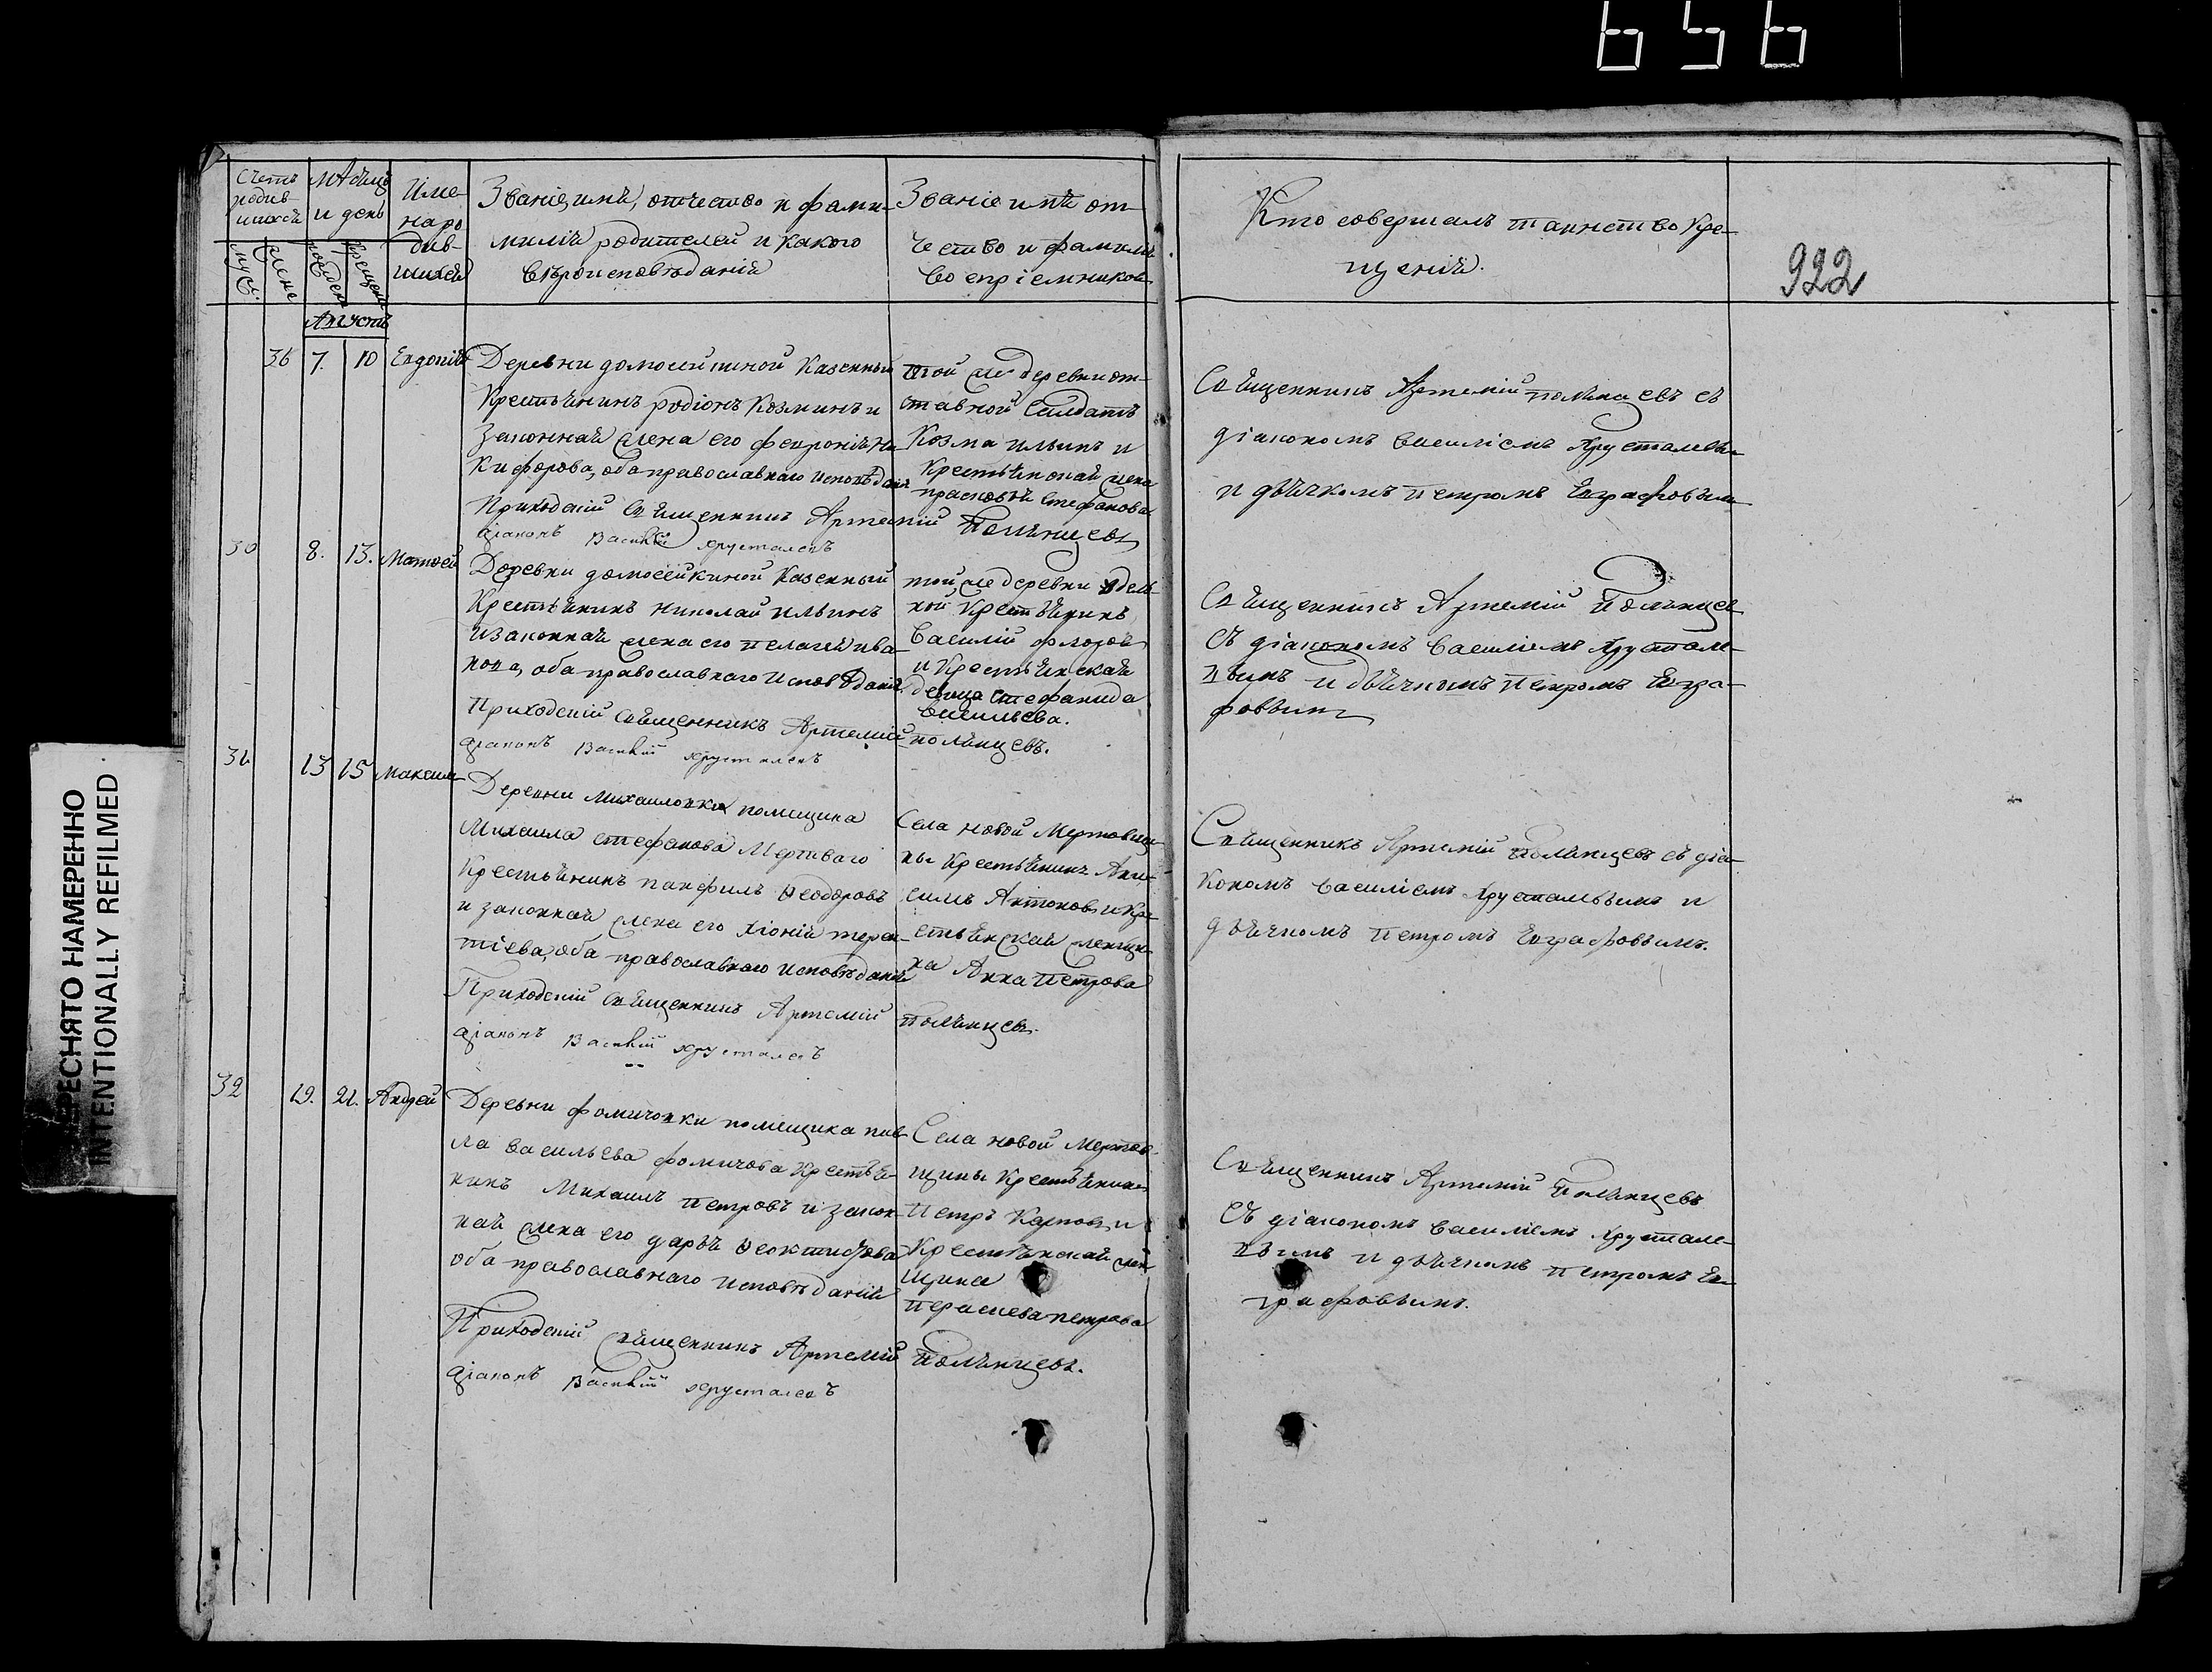 656
922
ПЕРЕСНЯТО НАМЕРЕННО
INTENTIONALLY REFILMED
Счетъ родив-шихся
мѣсяцъ и день
Име-на ро-див-шихся
Званіе, имя, отчество и фами-
милія родителей и какого
вѣроисповѣданія
Званіе имя от-
чество и фамилія
воспріемниковъ
Кто совершалъ таинство кре-
щенія.
муж.
жена
рожден.
крещен.
Августъ
36 7. 10 Евдокія
Деревни домосейкиной Казенный
Крестьянинъ родіонъ Козминъ и
Законная жена его февронія ни-
кифорова, оба православнаго исповѣданія
Приходскій Священникъ Артемій Полянцевъ
діаконъ Василій хрусталевъ
той же деревни от-
ставной Салдатъ
Козма ильинъ и
Крестьянская жена
прасковья Стефанова
Священникъ Артемій полянцевъ съ
діакономъ василіемъ хрусталевы
и дьячкомъ петромъ Евграфовым
30 8. 13. Матвей
Деревни домосейкиной Казенный
Крестьянинъ николай ильинъ
и законная жена его пелагея ива-
нова, оба православнаго исповѣданія
Приходскій священникъ Артемій полянцевъ.
діаконъ Василій хрусталевъ
той же деревни удель-
ной Крестьянинъ
Василій флоровъ
и Крестьянская
девица Стефанида
васильева.
Священникъ Артемій Полянцев
Съ діакономъ василіемъ хрустале-
вымъ и дьячкомъ петромъ Евгра-
фовымъ
31 13 15 Максимъ
Деревни михаиловки помещика
Михаила стефанова Мертваго
Крестьянинъ панфилъ Ѳеодоровъ
и законная жена его хіонія терен-
тіева, оба православнаго исповѣданія
Приходскій священникъ Артемій полянцевъ.
діаконъ Василій хрусталевъ
Села новой Мертовщи-
ны Крестьянинъ Ани-
симъ Антоновъ и Кре-
стьянская женщи-
на Анна петрова
Священникъ Артемій Полянцевъ съ діа-
кономъ василіемъ хрусталевымъ и
дьячкомъ петромъ Евграфовымъ.
32 19. 21. Андрей
Деревни фомичовки помещика пав-
ла васильева фомичова Крестья-
нинъ Михаилъ петровъ и закон-
ная жена его дарья Ѳеоктистова
оба православнаго исповѣданія
Приходскій священникъ Артемій Полянцевъ.
діаконъ Василій хрусталевъ
Села новой Мертов-
щины Крестьянинъ
Петръ Карповъ и
Крестьянская жен
щина
петрова
Священникъ Артемій Полянцевъ
Съ діакономъ василіемъ хрустале-
вымъ и дьячкомъ петромъ Ев-
графовымъ.